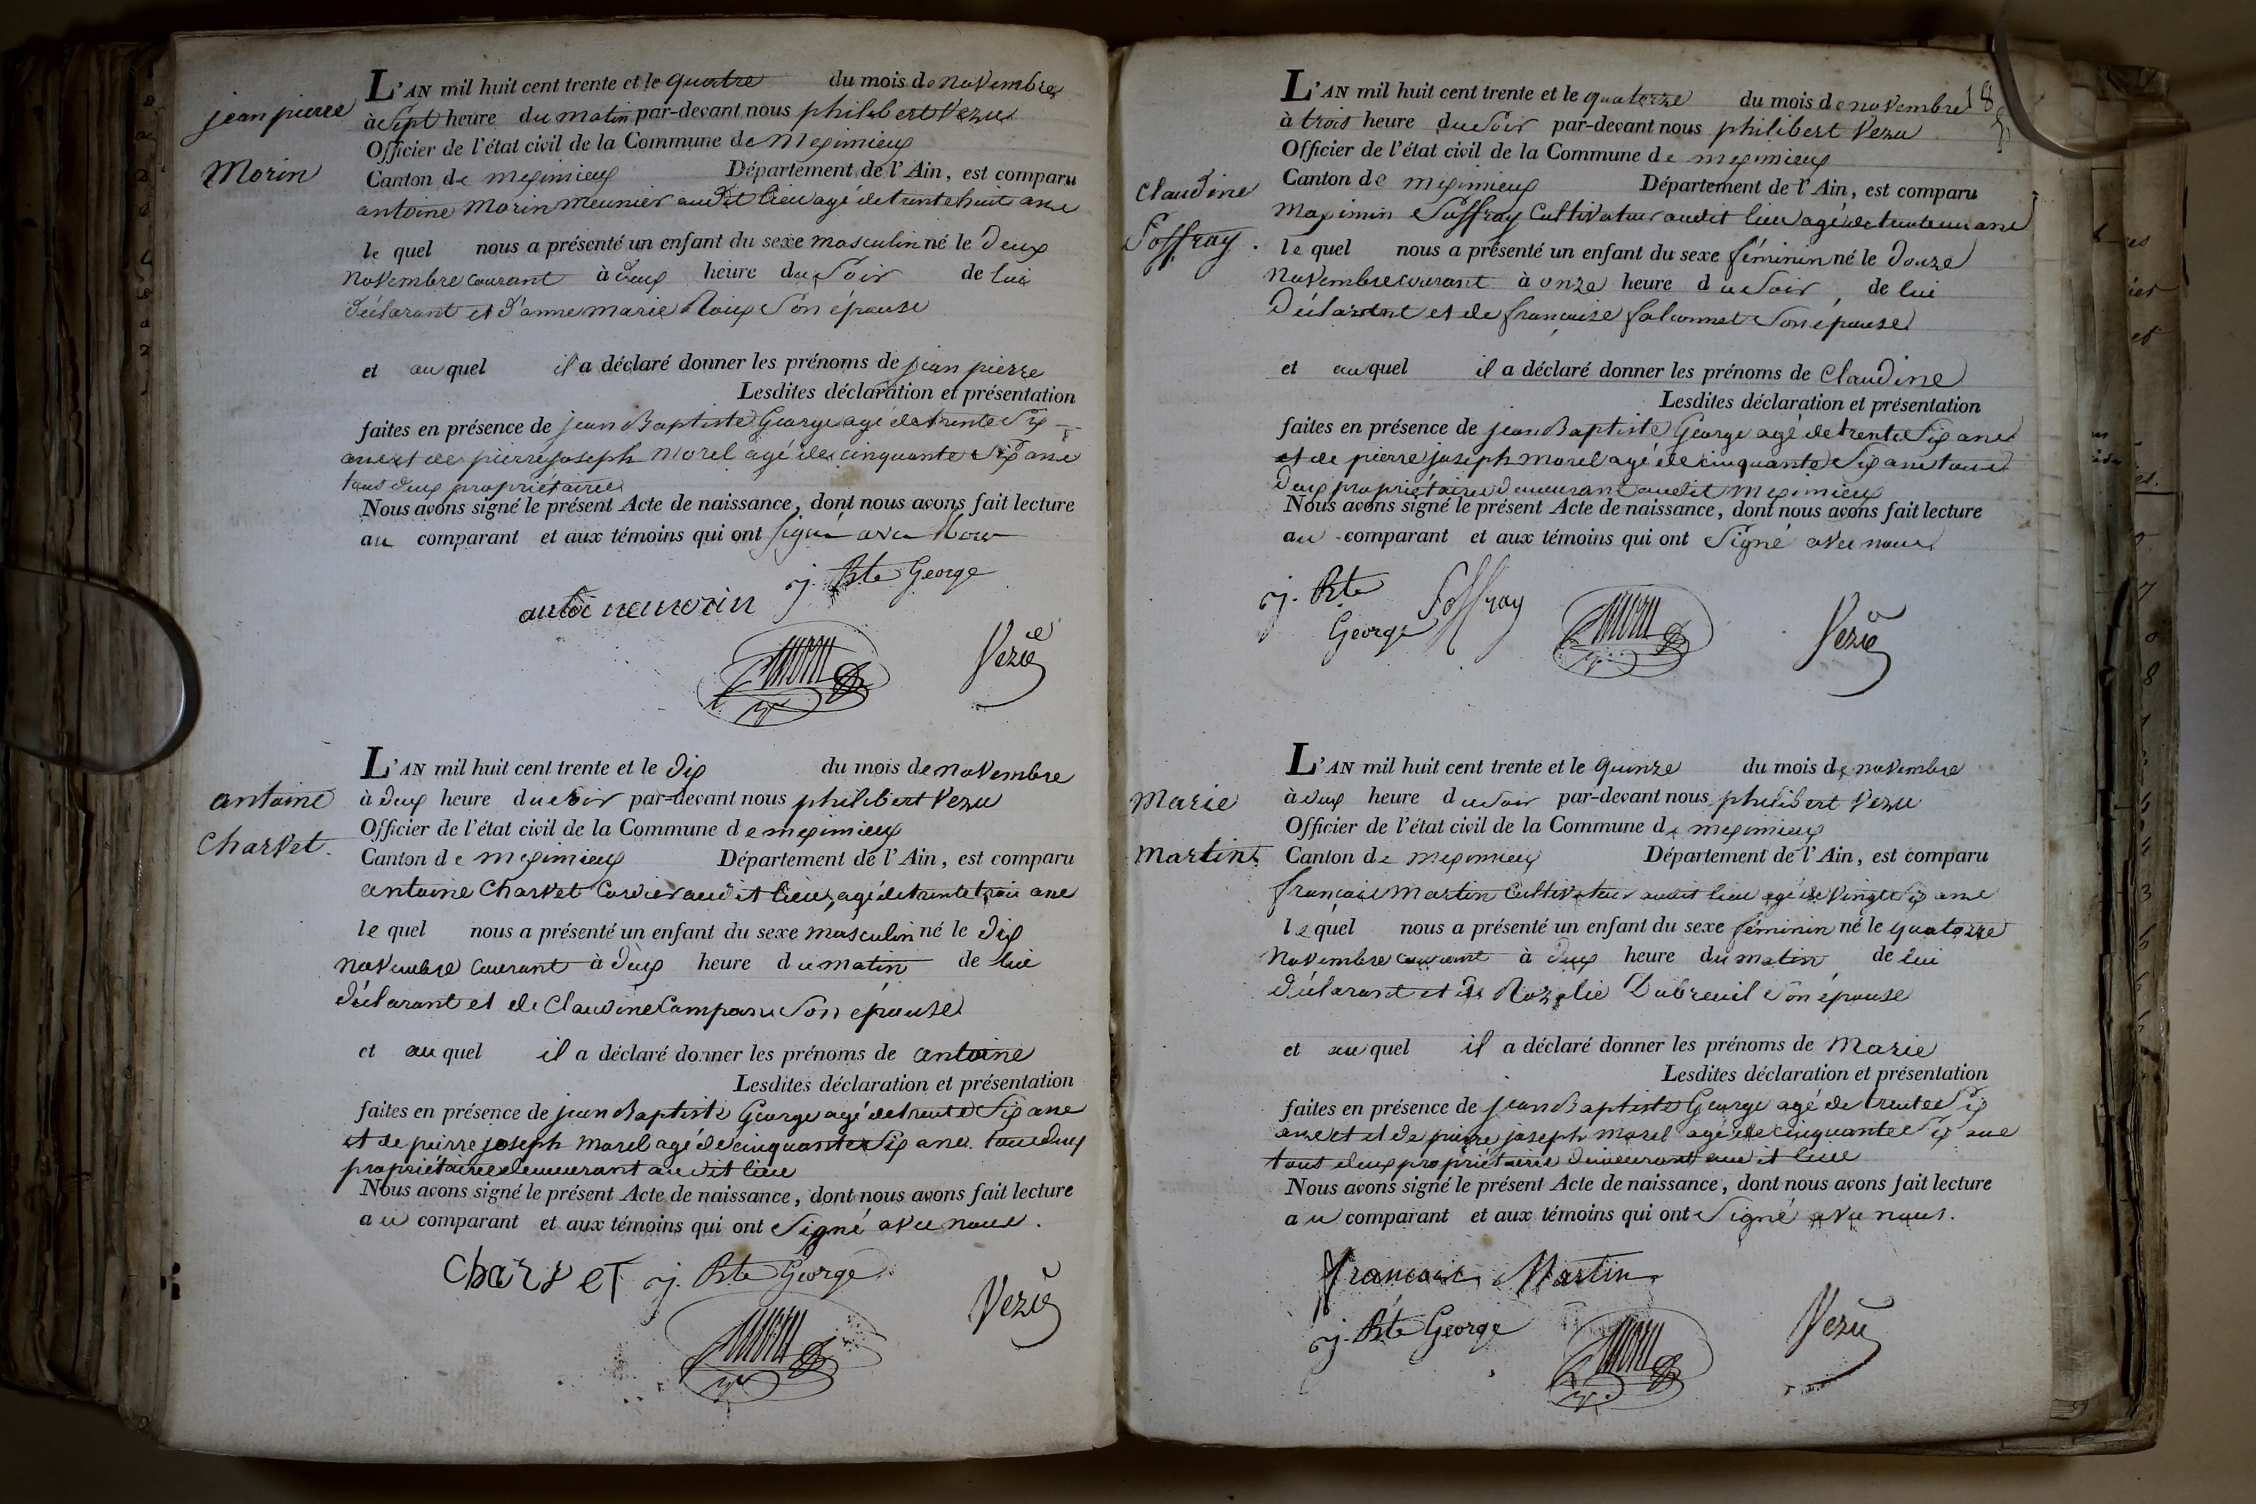 jean pierre
Morin
L'AN mil huit cent trente et le quatre du mois de novembre
à Sept heure du matin par-devant nous philibert Vezu
Officier de l'état civil de la Commune de Meximieux
Canton de meximieux Département de l'Ain, est comparu
antoine Morin meunier audit lieu agé de trente huit ans
le quel nous a présenté un enfant du sexe masculin né le deux
novembre courant à deux heure du Soir de lui
déclarant et d'anne marie Roux Son épouse
et au quel il a déclaré donner les prénoms de jean pierre
Lesdites déclaration et présentation
faites en présence de jean Baptiste George agé de trente Six
ans et de pierre joseph Morel agé de cinquante Six ans
tous deux propriétaires
Nous avons signé le présent Acte de naissance, dont nous avons fait lecture
au comparant et aux témoins qui ont signé avec Nous
antoi nemorin j. Bte George
Vezu
antoine
Charvet.
L'AN mil huit cent trente et le dix du mois de novembre
à deux heure du Soir par-devant nous philibert Vezu
Officier de l'état civil de la Commune de meximieux
Canton de meximieux Département de l'Ain, est comparu
antoine Charvet Cordier audit lieu, agé de trente trois ans
le quel nous a présenté un enfant du sexe masculin né le dix
novembre courant à deux heure du matin de lui
déclarant et de Claudine Campan Son épouse
et au quel il a déclaré donner les prénoms de antoine
Lesdites déclaration et présentation
faites en présence de jean Baptiste George agé de trente Six ans
et de pierre joseph Morel agé de cinquante Six ans tous deux
propriétaires demeurant audit lieu
Nous avons signé le présent Acte de naissance, dont nous avons fait lecture
au comparant et aux témoins qui ont Signé avec nous.
Charvet j. Bte George
Vezu
18
Claudine
Soffray.
L'AN mil huit cent trente et le quatorze du mois de novembre
à trois heure du Soir par-devant nous philibert Vezu
Officier de l'état civil de la Commune de meximieux
Canton de meximieux Département de l'Ain, est comparu
Maximin Soffray Cultivateur audit lieu agé de trente un ans
le quel nous a présenté un enfant du sexe féminin né le douze
novembre courant à onze heure du Soir, de lui
Déclarant et de françoise falconnet Son épouse
et au quel il a déclaré donner les prénoms de Claudine
Lesdites déclaration et présentation
faites en présence de jean Baptiste George agé de trente Six ans
et de pierre joseph Morel agé de cinquante Six ans tous
deux propriétaires demeurant audit Meximieux
Nous avons signé le présent Acte de naissance, dont nous avons fait lecture
au comparant et aux témoins qui ont Signé avec nous
j. Bte
George Soffray
Vezu
Marie
Martin
L'AN mil huit cent trente et le quinze du mois de novembre
à deux heure du Soir par-devant nous philibert Vezu
Officier de l'état civil de la Commune de meximieux
Canton de meximieux Département de l'Ain, est comparu
françois Martin Cultivateur audit lieu agé de vingt Six ans
le quel nous a présenté un enfant du sexe féminin né le quatorze
Novembre courant à deux heure du matin de lui
déclarant et de Rozalie Dubreuil Son épouse
et au quel il a déclaré donner les prénoms de Marie
Lesdites déclaration et présentation
faites en présence de jean Baptiste George agé de trente Six
ans et et de pierre joseph Morel agé de cinquante Six ans
tous deux propriétaires demeurant audit lieu
Nous avons signé le présent Acte de naissance, dont nous avons fait lecture
au comparant et aux témoins qui ont Signé avec nous.
francois Martin
j. Bte George
Vezu